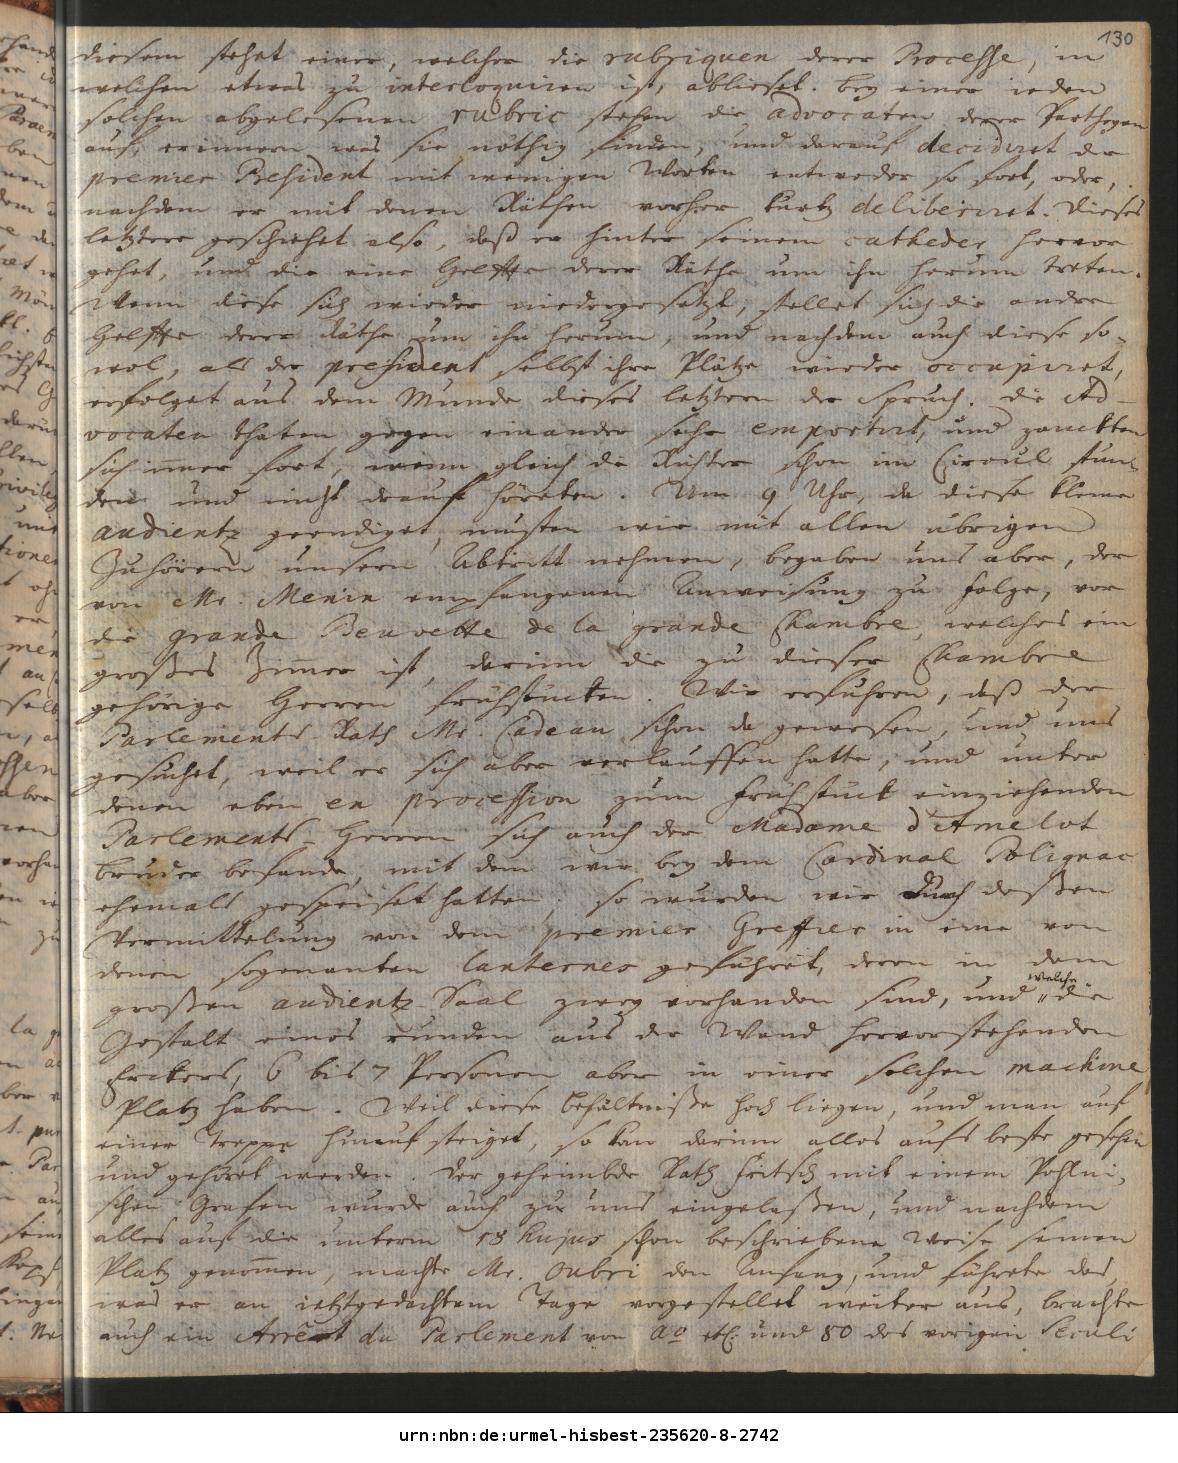 130
diesem stehet einer, welcher die rubriquen derer Processe, in
welchen etwas zu interloquiren ist, ablieset. bey einer ieden
solchen abgelesenen rubric stehen die advocaten derer Partheyen
auf, erinnern was sie nöthig finden, und darauf decidiret der
premier President mit wenigen Worten entweder so fort, oder,
nachdem er mit denen Räthen vorher kurtz deliberiret. Dieses
letztere geschiehet also, daß er hinter seinem catheder hervor
gehet, und die eine Helffte derer Räthe um ihn herum treten.
Wenn diese sich wieder niedergesetzt, stellet sich die andre
Helffte derer Räthe um ihn herum, und nachdem auch diese so-
wol, als der president selbst ihre Plätze wieder occupiret,
erfolget aus dem Munde dieses letztern der Spruch. die Ad-
vocaten thaten gegen einander sehr emportirt, und zanckten
sich im̄er fort, wenn gleich die Richter schon im Circul stun-
den und nicht drauf höreten. Um 9 Uhr, da diese kleine
audientz geendiget, musten wir mit allen übrigen
Zuhörern unsern Abtritt nehmen, begaben uns aber, der
von Mr. Menin empfangenen Anweisung zu folge, vor
die grande Beuvette de la grande Chambre, welches ein
großes Zim̄er ist, darinn die zu dieser Chambre
gehörige Herren frühstücken. Wir erfuhren, daß der
Parlements-Rath Mr. Cadeau schon da gewesen, und uns
gesuchet, weil er sich aber verlauffen hatte, und unter
denen eben en procession zum Frühstück einziehenden
Parlements-Herren sich auch der Madame d'Amelot
bruder befande, mit dem wir bey dem Cardinal Polignac
ehemals gespeiset hatten, so wurden wir durch deßen
Vermittelung von dem premier Greffier in eine von
denen sogenanten lanternes geführet, deren in dem
großen audientz-Saal zwey vorhanden sind, und welche die
Gestalt eines runden aus der Wand hervorstehenden
Erckers, 6 bis 7 Personen aber in einer solchen machine
Platz haben. Weil diese behältniße hoch liegen, und man auf
einer Treppe hinauf steiget, so kan darinn alles aufs beste gesehen
und gehöret werden. Der geheimbde Rath Fritsch mit einem Pohlni-
schen Grafen wurde auch zu uns eingelaßen, und nachdem
alles auf die unterm 13 hujus schon beschriebene Weise seinen
Platz genom̄en, machte Mr. Oubri den Anfang, und führete das,
was er an ietztgedachtem Tage vorgestellet weiter aus, brachte
auch ein Arrêt du Parlement von Ao und 80 des vorigen Seculi
urn:nbn:de:urmel-hisbest-235620-8-2742